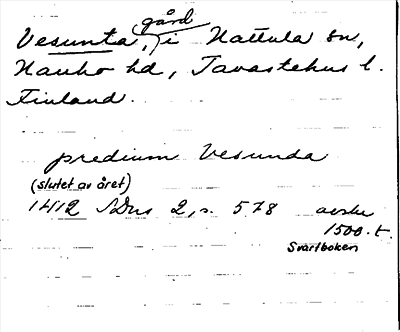 Vesunta, gård i Hattula sn,
Hauho hd, Tavastehus l.
Finland.
predium Vesunda
(slutet av året)
1412 SDns 2, s. 578 avskr
1500-t.
Svartboken